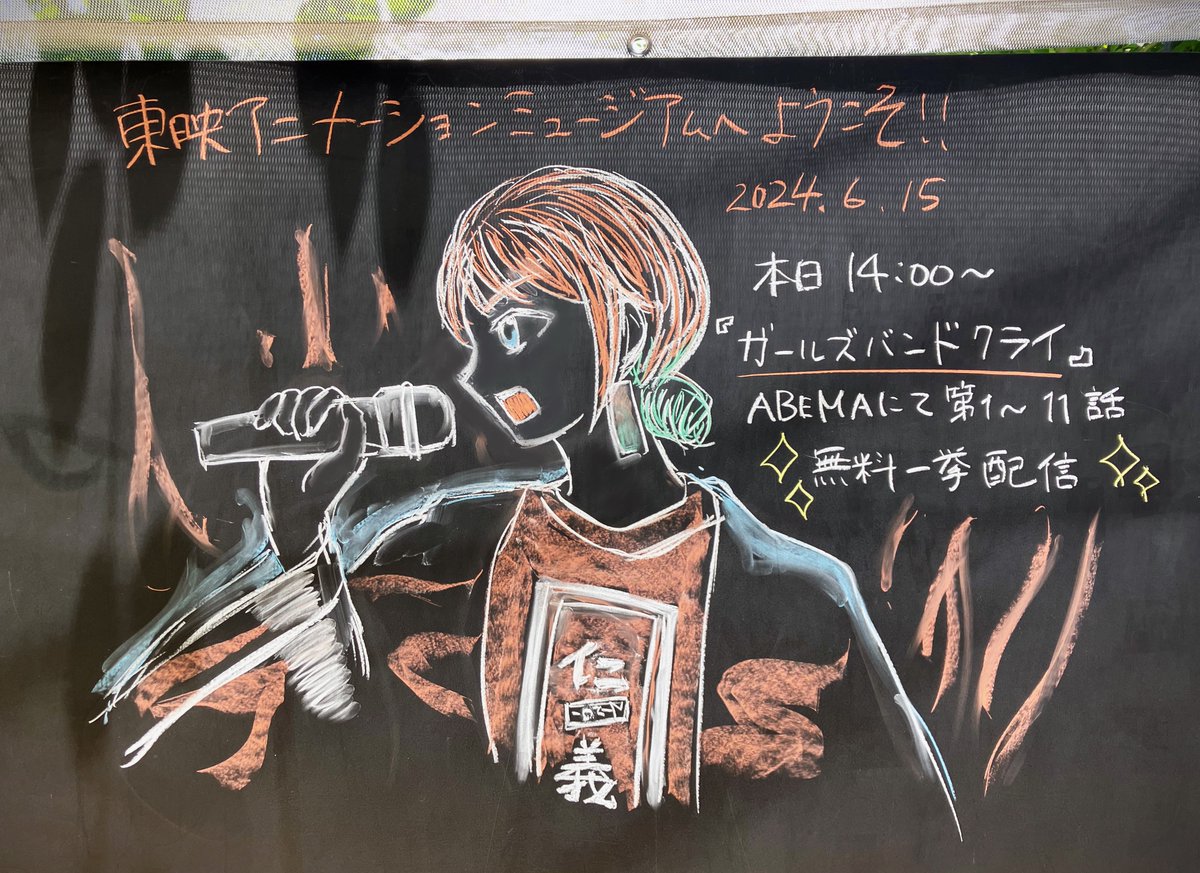 東映アニメーションミュージアムへようこそ!!
2024.6.15
本日 14:00～
『ガールズバンドクライ』
ABEMAにて第1～11話
無料一挙配信
仁
義